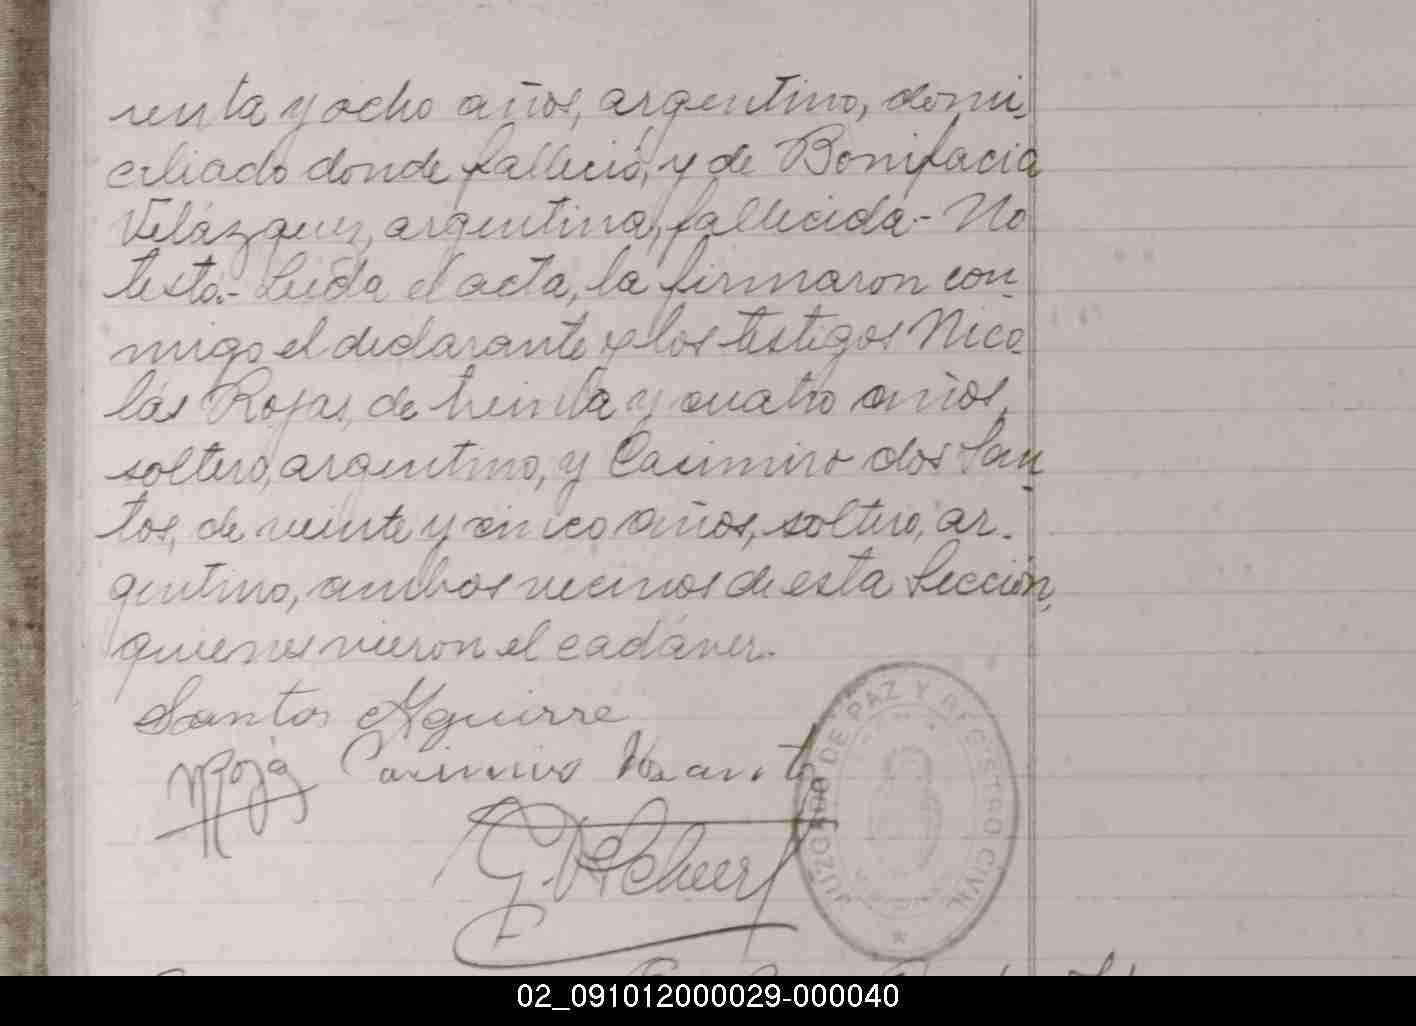 renta y ocho años, argentino, domi-
ciliado donde falleció, y de Bonifacia
Velázquez, argentina, fallecida.- No
testó.- Leída el acta, la firmaron con-
migo el declarante y los testigos Nico-
lás Rojas, de treinta y cuatro años,
soltero, argentino, y Casimiro dos San-
tos, de veinte y cinco años, soltero, ar-
gentino, ambos vecinos de esta Sección,
quienes vieron el cadáver.
Santos Aguirre
NRojas Casimiro
JUZGADO DE PAZ Y REGISTRO CIVIL
02_091012000029-000040